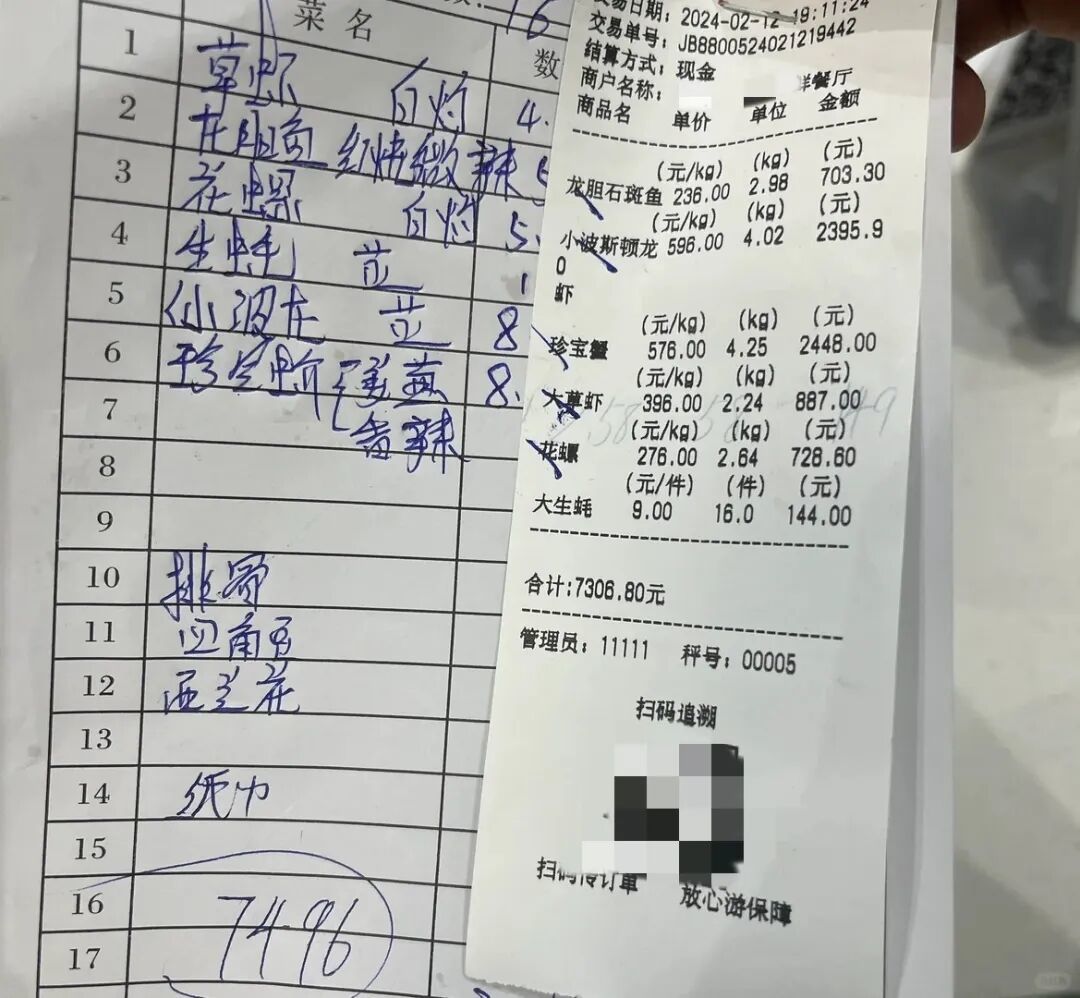 菜名
数
16
1 草虾 白灼 4.
2 龙胆 红烧微辣
3 花螺 白灼 5.
4 生蚝 1
5 小波龙 8
6 珍宝蟹 8.
香辣
7
8
9
10 排骨
11 四角豆
12 西兰花
13
14 纸巾
15
16
17
7496
交易日期: 2024-02-12 19:11:24
交易单号: JB8800524021219442
结算方式: 现金
商户名称: 鲜餐厅
商品名 单价 单位 金额
(元/kg) (kg) (元)
龙胆石斑鱼 236.00 2.98 703.30
(元/kg) (kg) (元)
小波斯顿龙 596.00 4.02 2395.9
0
虾
(元/kg) (kg) (元)
珍宝蟹 576.00 4.25 2448.00
(元/kg) (kg) (元)
大草虾 396.00 2.24 887.00
(元/kg) (kg) (元)
花螺 276.00 2.64 728.60
(元/件) (件) (元)
大生蚝 9.00 16.0 144.00
合计:7306.80元
管理员: 11111 秤号: 00005
扫码追溯
扫码传订单 放心游保障